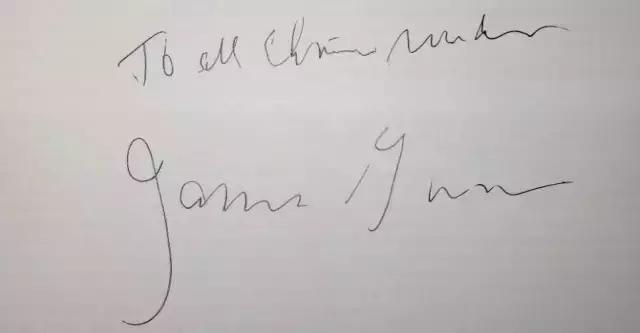 To all Chinese readers
James Gunn